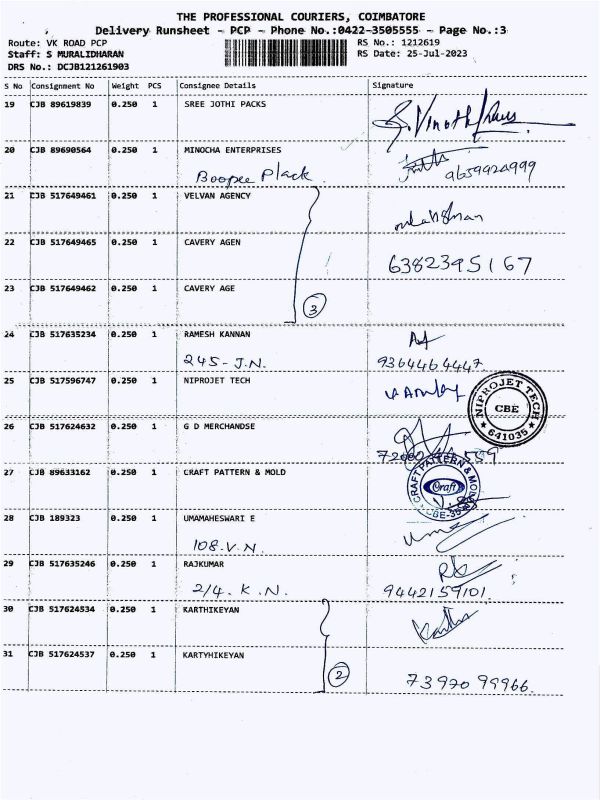 THE PROFESSIONAL COURIERS, COIMBATORE
Delivery Runsheet - PCP - Phone No.:0422-3505555 - Page No.:3
Route: VK ROAD PCP RS No.: 1212619
Staff: S MURALIDHARAN RS Date: 25-Jul-2023
DRS No.: DCJB121261903
S No Consignment No Weight PCS Consignee Details Signature
19 CJB 89619839 0.250 1 SREE JOTHI PACKS
20 CJB 89690564 0.250 1 MINOCHA ENTERPRISES
21 CJB 517649461 0.250 1 VELVAN AGENCY
22 CJB 517649465 0.250 1 CAVERY AGEN
6382395167
23 CJB 517649462 0.250 1 CAVERY AGE
3
24 CJB 517635234 0.250 1 RAMESH KANNAN
245-J.N. 9364464447
25 CJB 517596747 0.250 1 NIPROJET TECH
NIPROJET TECH
CBE
641035
26 CJB 517624632 0.250 1 G D MERCHANDSE
27 CJB 89633162 0.250 1 CRAFT PATTERN & MOLD
CRAFT PATTERN & MOLD
Craft
28 CJB 189323 0.250 1 UMAMAHESWARI E
108.V.N.
29 CJB 517635246 0.250 1 RAJKUMAR
2/4. K.N. 9442159101.
30 CJB 517624534 0.250 1 KARTHIKEYAN
31 CJB 517624537 0.250 1 KARTYHIKEYAN
2 7397099966.